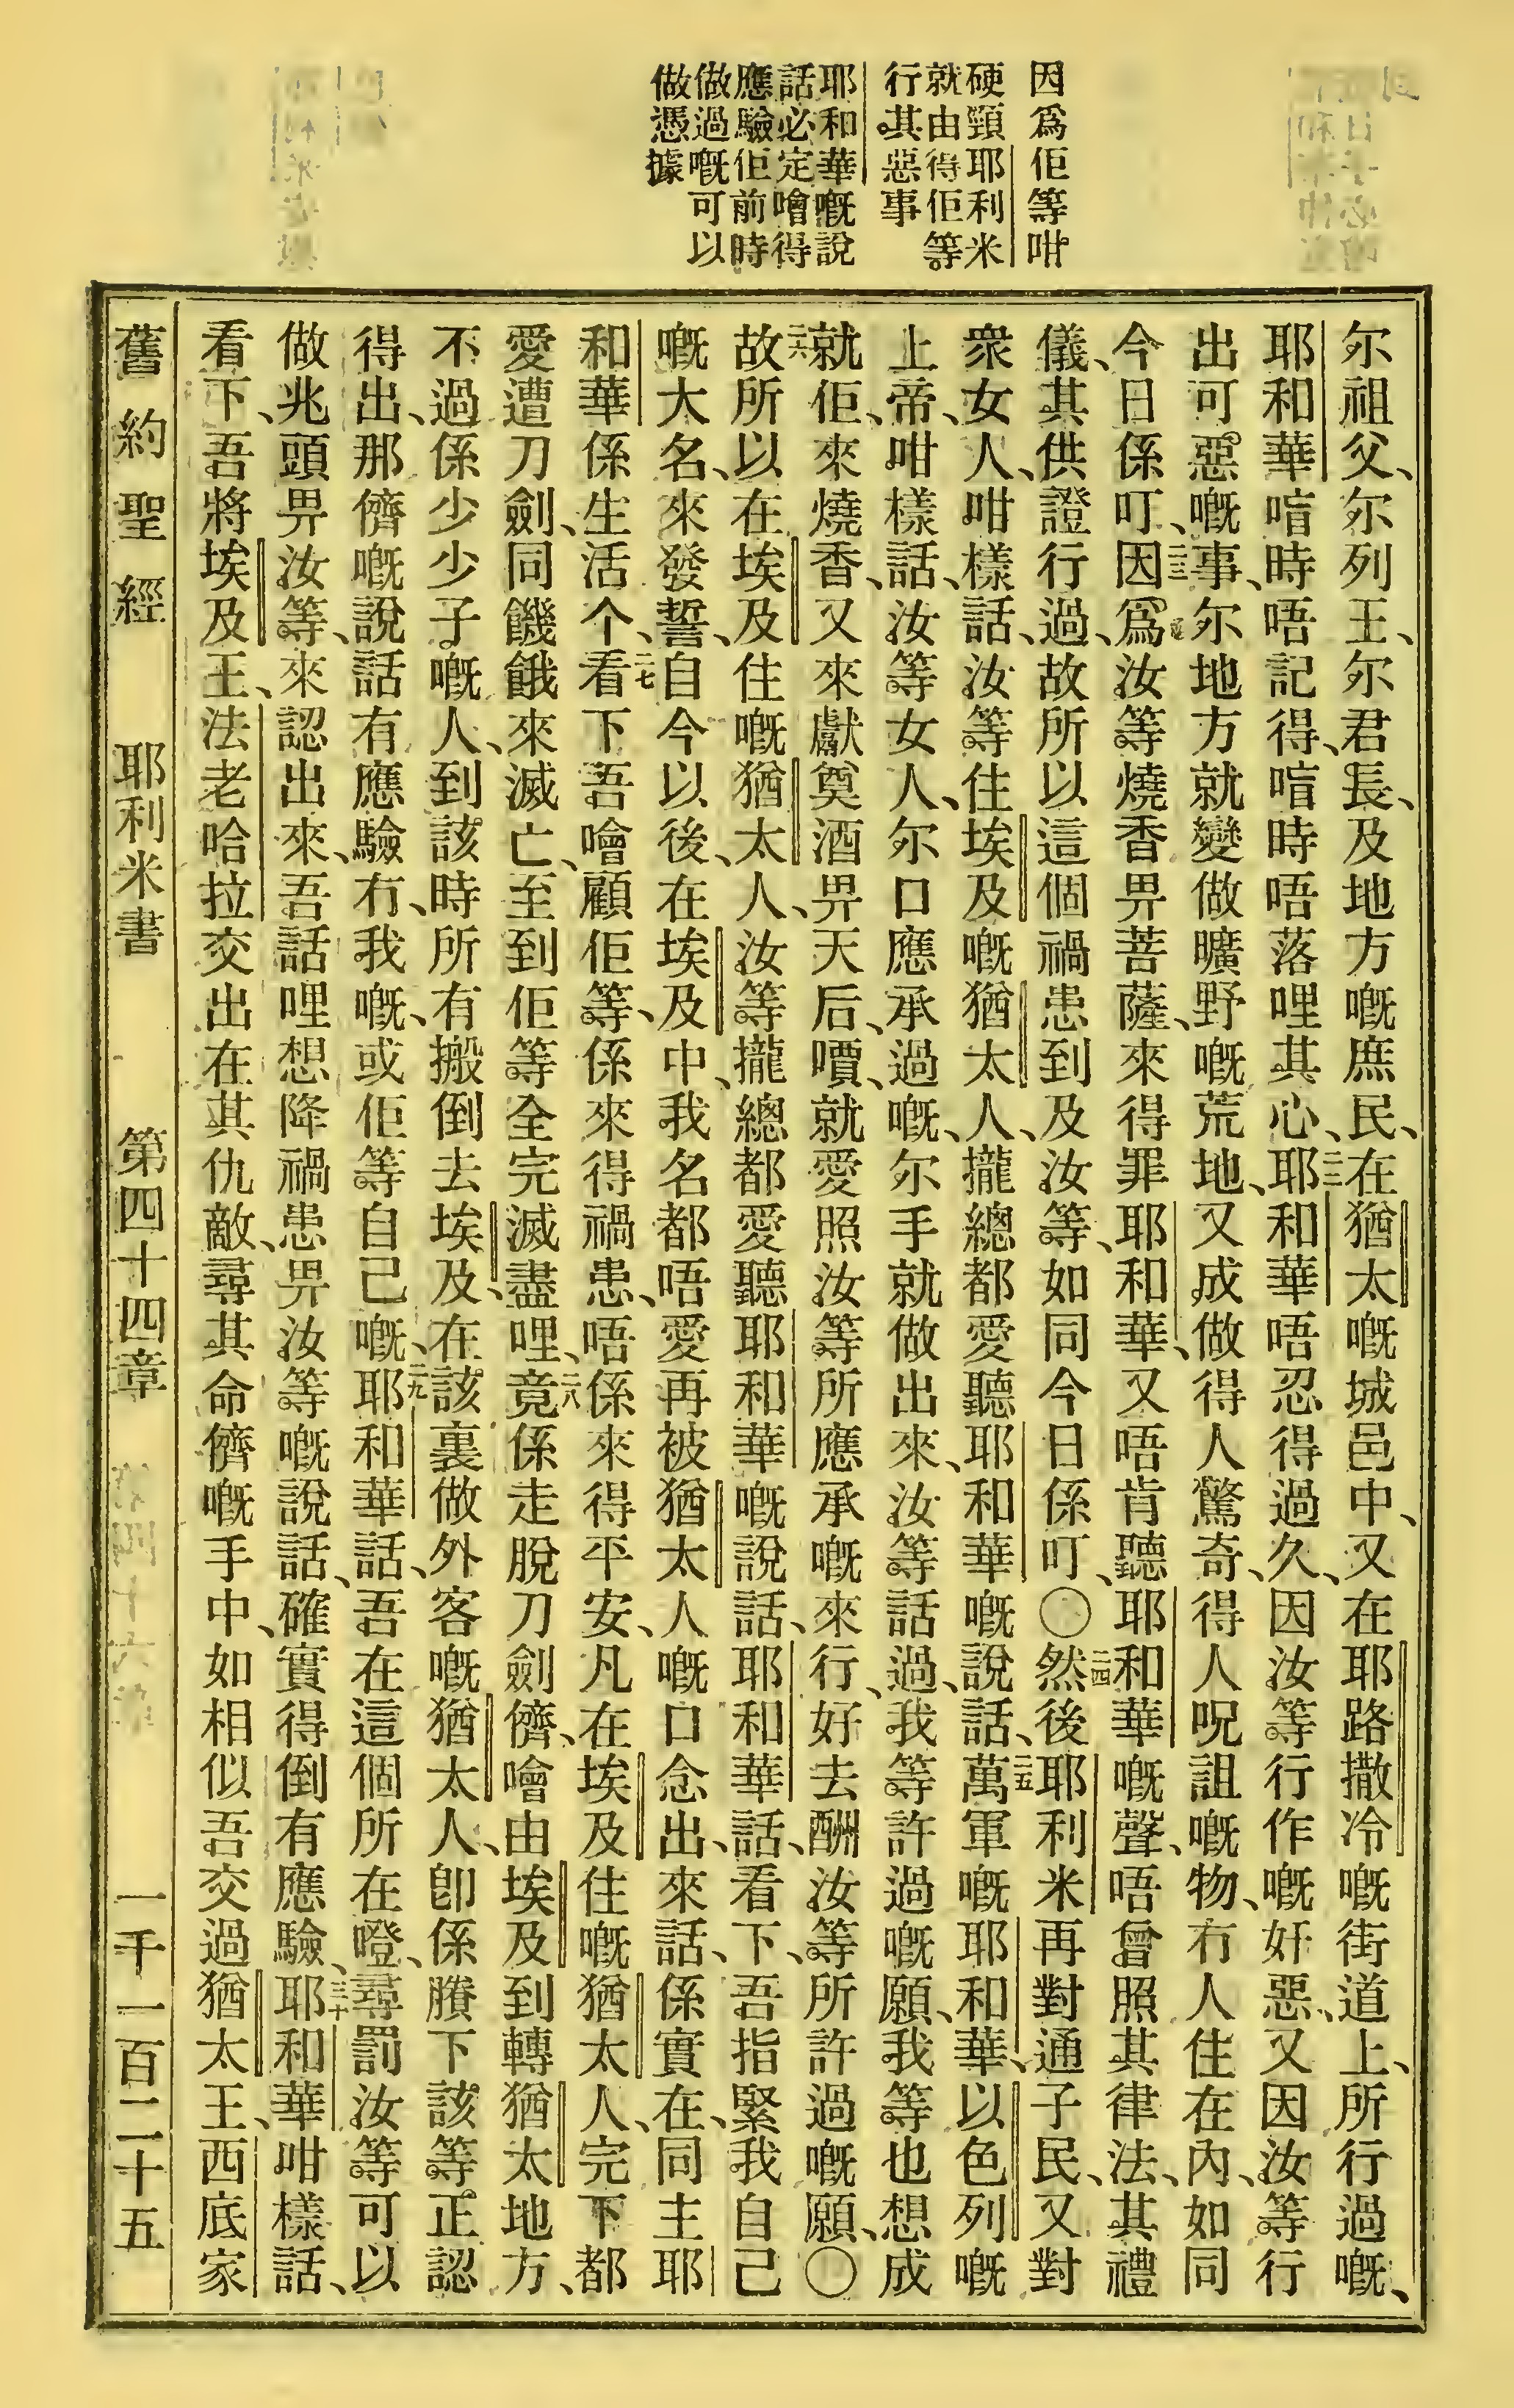 因爲佢等咁
硬頸耶利米
就由得佢等
行其惡事
耶和華嘅說
話必定噲得
應驗佢前時
做過嘅可以
做憑據
尔祖父、尔列王、尔君長、及地方嘅庶民、在猶太嘅城邑中、又在耶路撒冷嘅街道上、所行過嘅、
耶和華唁時唔記得、唁時唔落哩其心、二二耶和華唔忍得過久、因汝等行作嘅奸惡、又因汝等行
出可惡嘅事、尔地方就變做曠野嘅荒地、又成做得人驚奇、得人呪詛嘅物、冇人住在內、如同
今日係叮、二三因爲汝等燒香畀菩薩、來得罪耶和華、又唔肯聽耶和華嘅聲、唔曾照其律法、其禮
儀、其供證行過、故所以這個禍患到及汝等、如同今日係叮、〇二四然後耶利米再對通子民、又對
衆女人、咁樣話、汝等住埃及嘅猶太人、攏總都愛聽耶和華嘅說話、二五萬軍嘅耶和華、以色列嘅
上帝、咁樣話、汝等女人、尔口應承過嘅、尔手就做出來、汝等話過、我等許過嘅願、我等也想成
就佢、來燒香、又來獻奠酒畀天后、嘪、就愛照汝等所應承嘅來行、好去酬汝等所許過嘅願、〇
二六故所以在埃及住嘅猶太人、汝等攏總都愛聽耶和華嘅說話、耶和華話、看下、吾指緊我自己
嘅大名、來發誓、自今以後、在埃及中、我名都唔愛再被猶太人嘅口念出來話、係實在、同主耶
和華係生活个、二七看下吾噲顧佢等、係來得禍患、唔係來得平安、凡在埃及住嘅猶太人、完下都
愛遭刀劍、同饑餓來滅亡、至到佢等全完滅盡哩、二八竟係走脫刀劍儕、噲由埃及到轉猶太地方、
不過係少少子嘅人、到該時所有搬倒去埃及、在該裏做外客嘅猶太人、卽係賸下該等正認
得出、那儕嘅說話有應驗冇、我嘅、或佢等自己嘅、二九耶和華話、吾在這個所在噔、尋罰汝等可以
做兆頭畀汝等、來認出來、吾話哩想降禍患畀汝等嘅說話、確實得倒有應驗、三十耶和華咁樣話、
看下、吾將埃及王、法老哈拉交出在其仇敵、尋其命儕嘅手中、如相似吾交過猶太王、西底家
舊約聖經　耶利米書　第四十四章　一千一百二十五